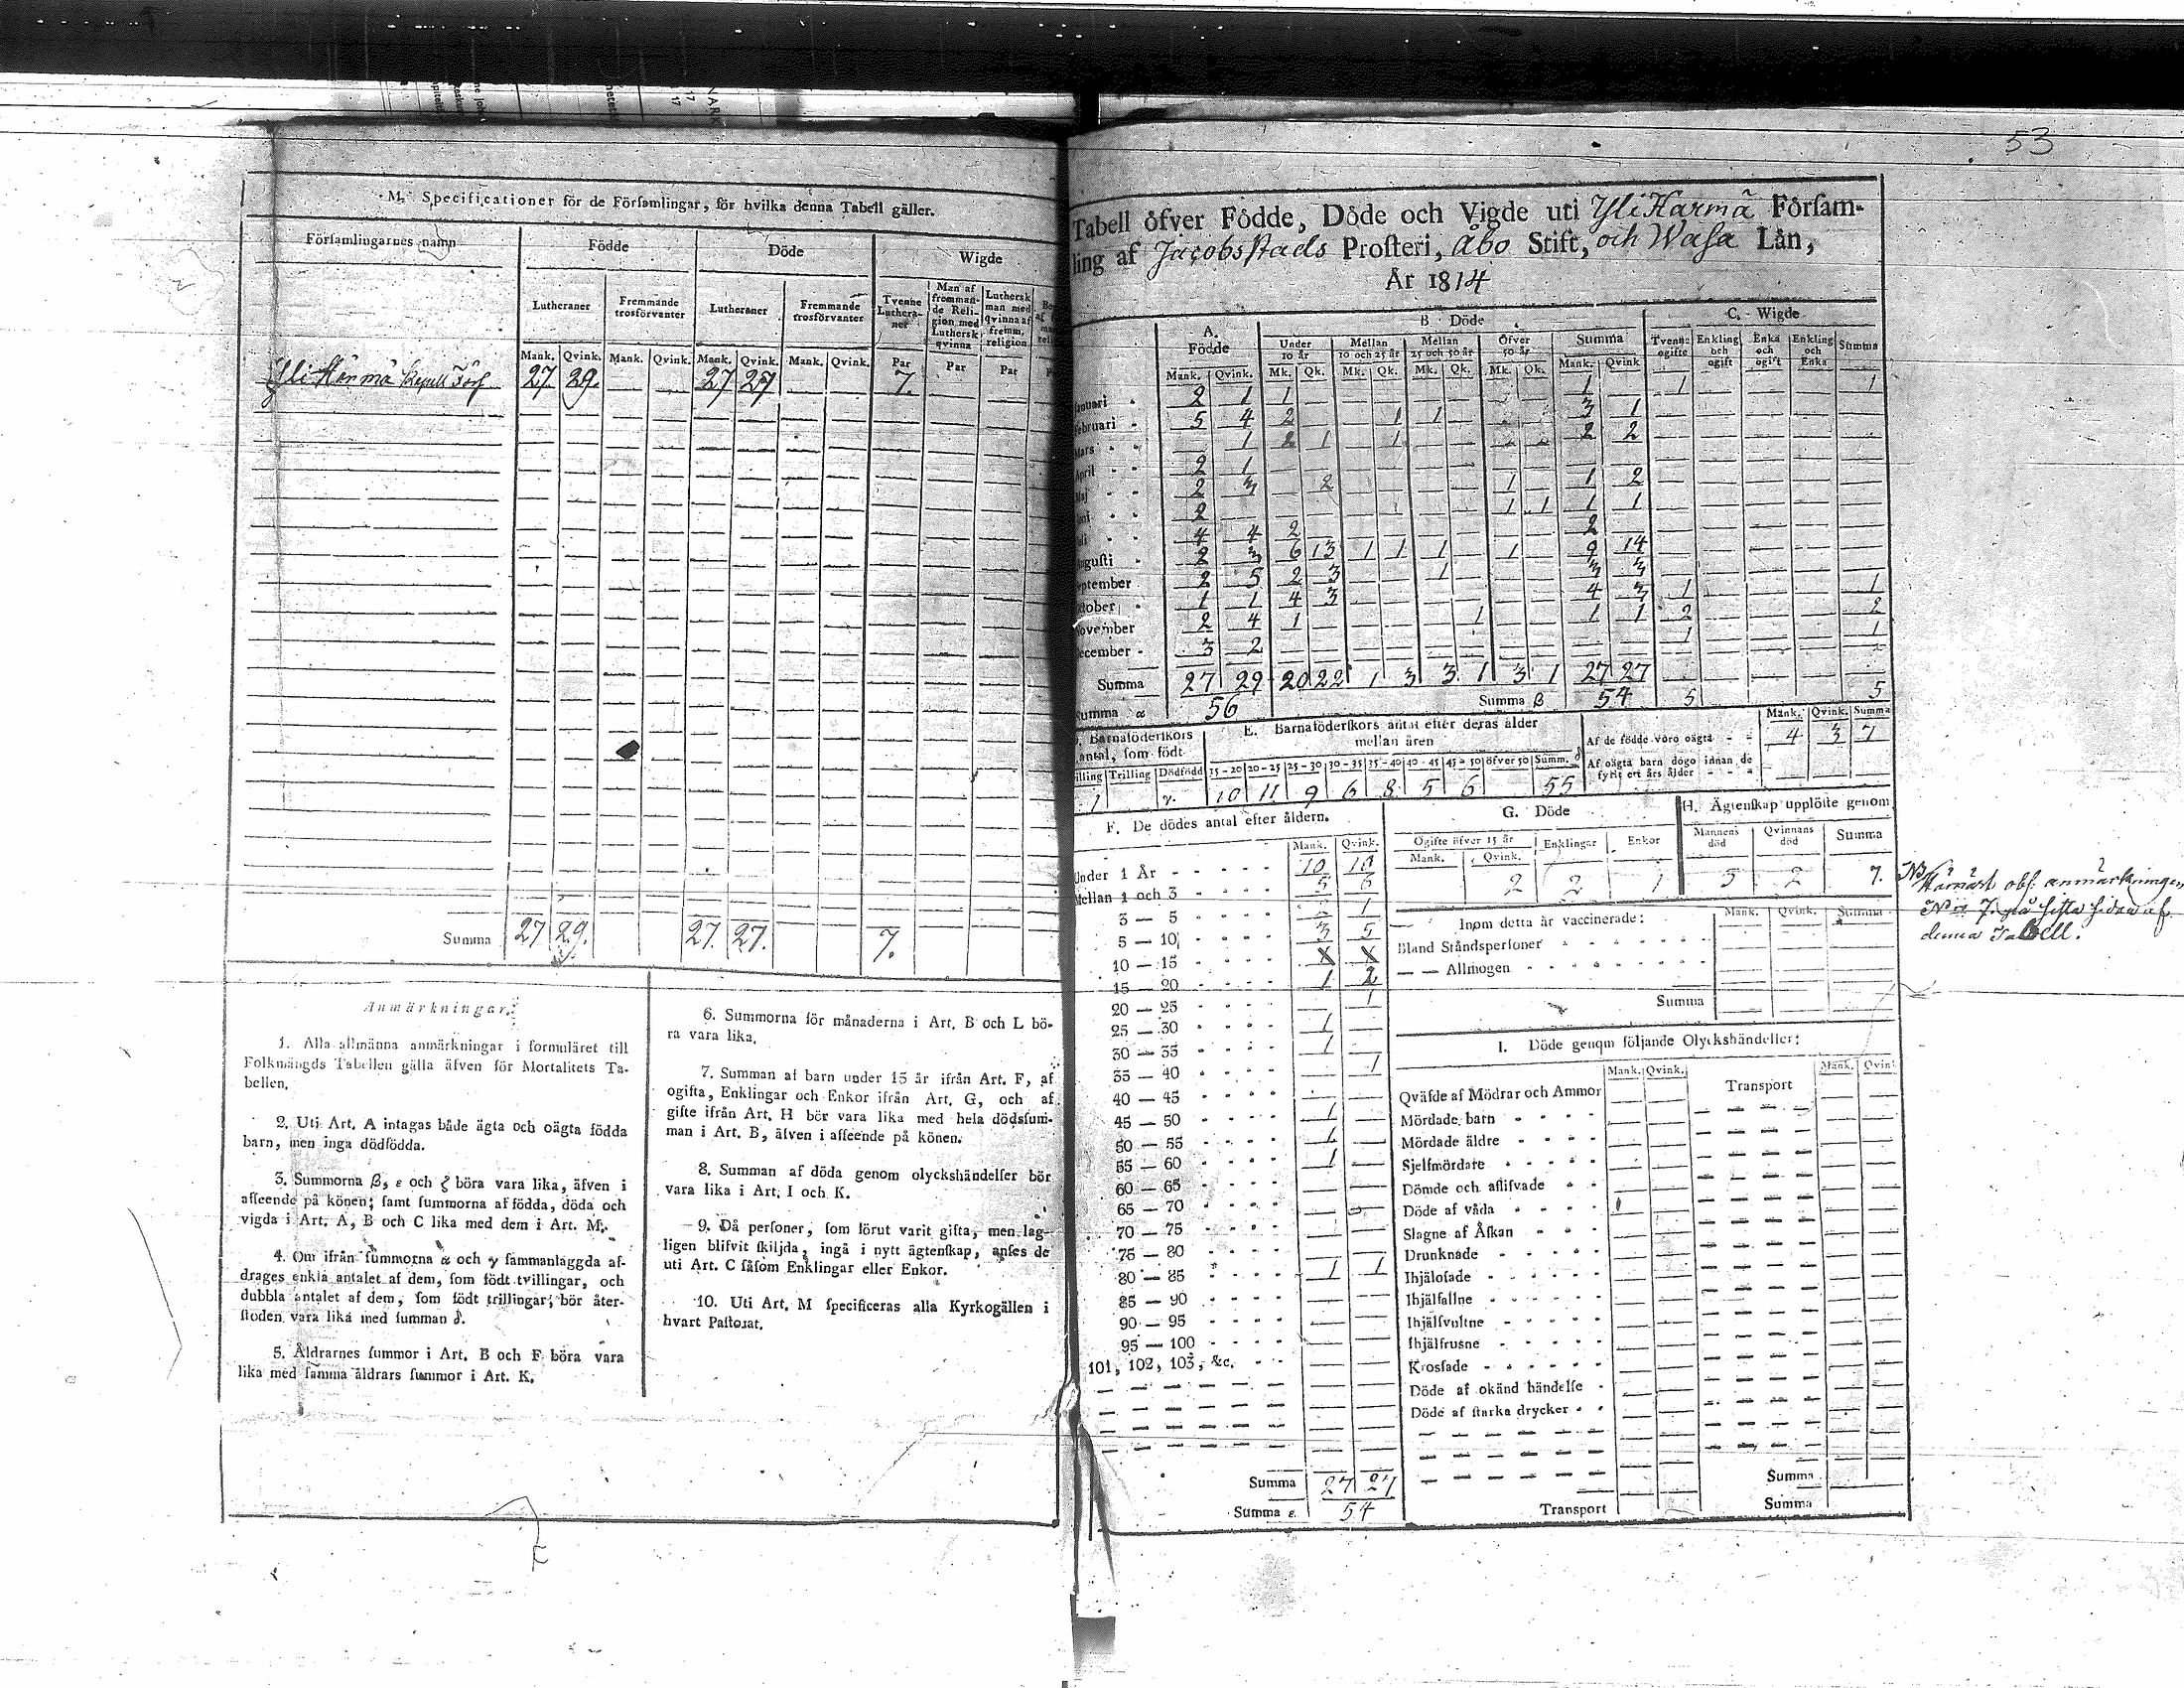 53
M. Specificationer för de Församlingar, för hvilka denna Tabell gäller.
Församlingarnes namn Födde Döde Wigde
Lutheraner Fremmande trosförvanter Lutheraner Fremmande trosförvanter Tvenne Lutheraner Man af fremmande Religion med Luthersk qvinna Luthersk man med qvinna af fremm. religion
Mank. Qvink. Mank. Qvink. Mank. Qvink. Mank. Qvink. Par Par Par
Yli Härmä Capell Förs 27 29. 27 27 7.
Summa 27 29. 27. 27. 7.
Anmärkningar.
1. Alla allmänna anmärkningar i formuläret till
Folkmängds Tabellen gälla äfven för Mortalitets Ta-
bellen.
2. Uti Art. A intagas både ägta och oägta födda
barn, men inga dödfödda.
3. Summorna β, ε och ζ böra vara lika, äfven i
afseende på könen; samt summorna af födda, döda och
vigda i Art. A, B och C lika med dem i Art. M.
4. Om ifrån summorna α och γ sammanlaggda af-
drages enkla antalet af dem, som födt tvillingar, och
dubbla antalet af dem, som födt trillingar, bör åter-
stoden vara lika med summan δ.
5. Åldrarnes summor i Art. B och F böra vara
lika med samma åldrars summor i Art. K.
6. Summorna för månaderna i Art. B och L bö-
ra vara lika.
7. Summan af barn under 15 år ifrån Art. F, af
ogifta, Enklingar och Enkor ifrån Art. G, och af
gifte ifrån Art. H bör vara lika med hela dödssum-
man i Art. B, äfven i afseende på könen.
8. Summan af döda genom olyckshändelser bör
vara lika i Art. I och K.
9. Då personer, som förut varit gifta, men lag-
ligen blifvit skiljda, ingå i nytt ägtenskap, anses de
uti Art. C såsom Enklingar eller Enkor.
10. Uti Art. M specificeras alla Kyrkogällen i
hvart Pastorat.
Tabell öfver Födde, Döde och Vigde uti Yli Harmä Försam-
ling af Jacobsstads Prosteri, Åbo Stift, och Wasa Län,
År 1814
A. Födde B. Döde C. Wigde
Under 10 år Mellan 10 och 25 år Mellan 25 och 50 år Öfver 50 år Summa Tvenne ogifte Enkling och ogift Enka och ogift Enkling och Enka Summa
Mank. Qvink. Mk. Qk. Mk. Qk. Mk. Qk. Mk. Qk. Mank. Qvink
Januari 2 1 1 1 1 1
Februari 5 4 2 1 1 3 1
Mars 1 2 1 1 2 2
April 2 1
Maj 2 3 2 1 1 2
Juni 2 1 1 1 1
Juli 4 4 2 2
Augusti 2 3 6 13 1 1 1 1 9 14
September 2 5 2 3 1 3 3
October 1 1 4 3 4 3 1 1
November 2 4 1 1 1 1 2 2
December 3 2 1 1
Summa 27 29 20 22 1 3 3 1 3 1 27 27
Summa α 56 Summa β 54 5 5
D. Barnaföderskors antal, som födt
Tvilling Trilling Dödfödd
1
E. Barnaföderskors antal efter deras ålder mellan åren
15-20 20-25 25-30 30-35 35-40 40-45 45-50 öfver 50 Summ. δ
10 11 9 6 8 5 6 55
Mank. Qvink. Summa
Af de födde voro oägta 4 3 7
Af oägta barn dogo innan de
fyllt ett års ålder
F. De dödes antal efter åldern.
Mank. Qvink.
Under 1 År 10 10
Mellan 1 och 3 5 6
3 — 5 1
5 — 10 3 5
10 — 15 X X
15 — 20 1 2
20 — 25 1
25 — 30 1
30 — 35 1
35 — 40 1
40 — 45
45 — 50 1
50 — 55 1
55 — 60 1
60 — 65
65 — 70
70 — 75
75 — 80
80 — 85 1 1
85 — 90
90 — 95
95 — 100
101, 102, 103, &c.
Summa 27 27
Summa ε. 54
G. Döde
Ogifte öfver 15 år Enklingar Enkor
Mank. Qvink.
2 2 1
H. Ägtenskap upplöste genom
Mannens död Qvinnans död Summa
5 2 7.
NB Härnäst obs. anmärkningen
N:o 7 på sista sidan af
denna Tabell.
Inom detta år vaccinerade: Mank. Qvink. Summa
Bland Ståndspersoner
— — Allmogen
Summa
I. Döde genom följande Olyckshändelser:
Mank. Qvink. Transport Mank. Qvink
Qväfde af Mödrar och Ammor
Mördade barn
Mördade äldre
Sjelfmördare
Dömde och aflifvade
Döde af våda
Slagne af Åskan
Drunknade
Ihjälosade
Ihjälfallne
Ihjälsvultne
Ihjälfrusne
Krossade
Döde af okänd händelse
Döde af starka drycker
Summa
Transport Summa